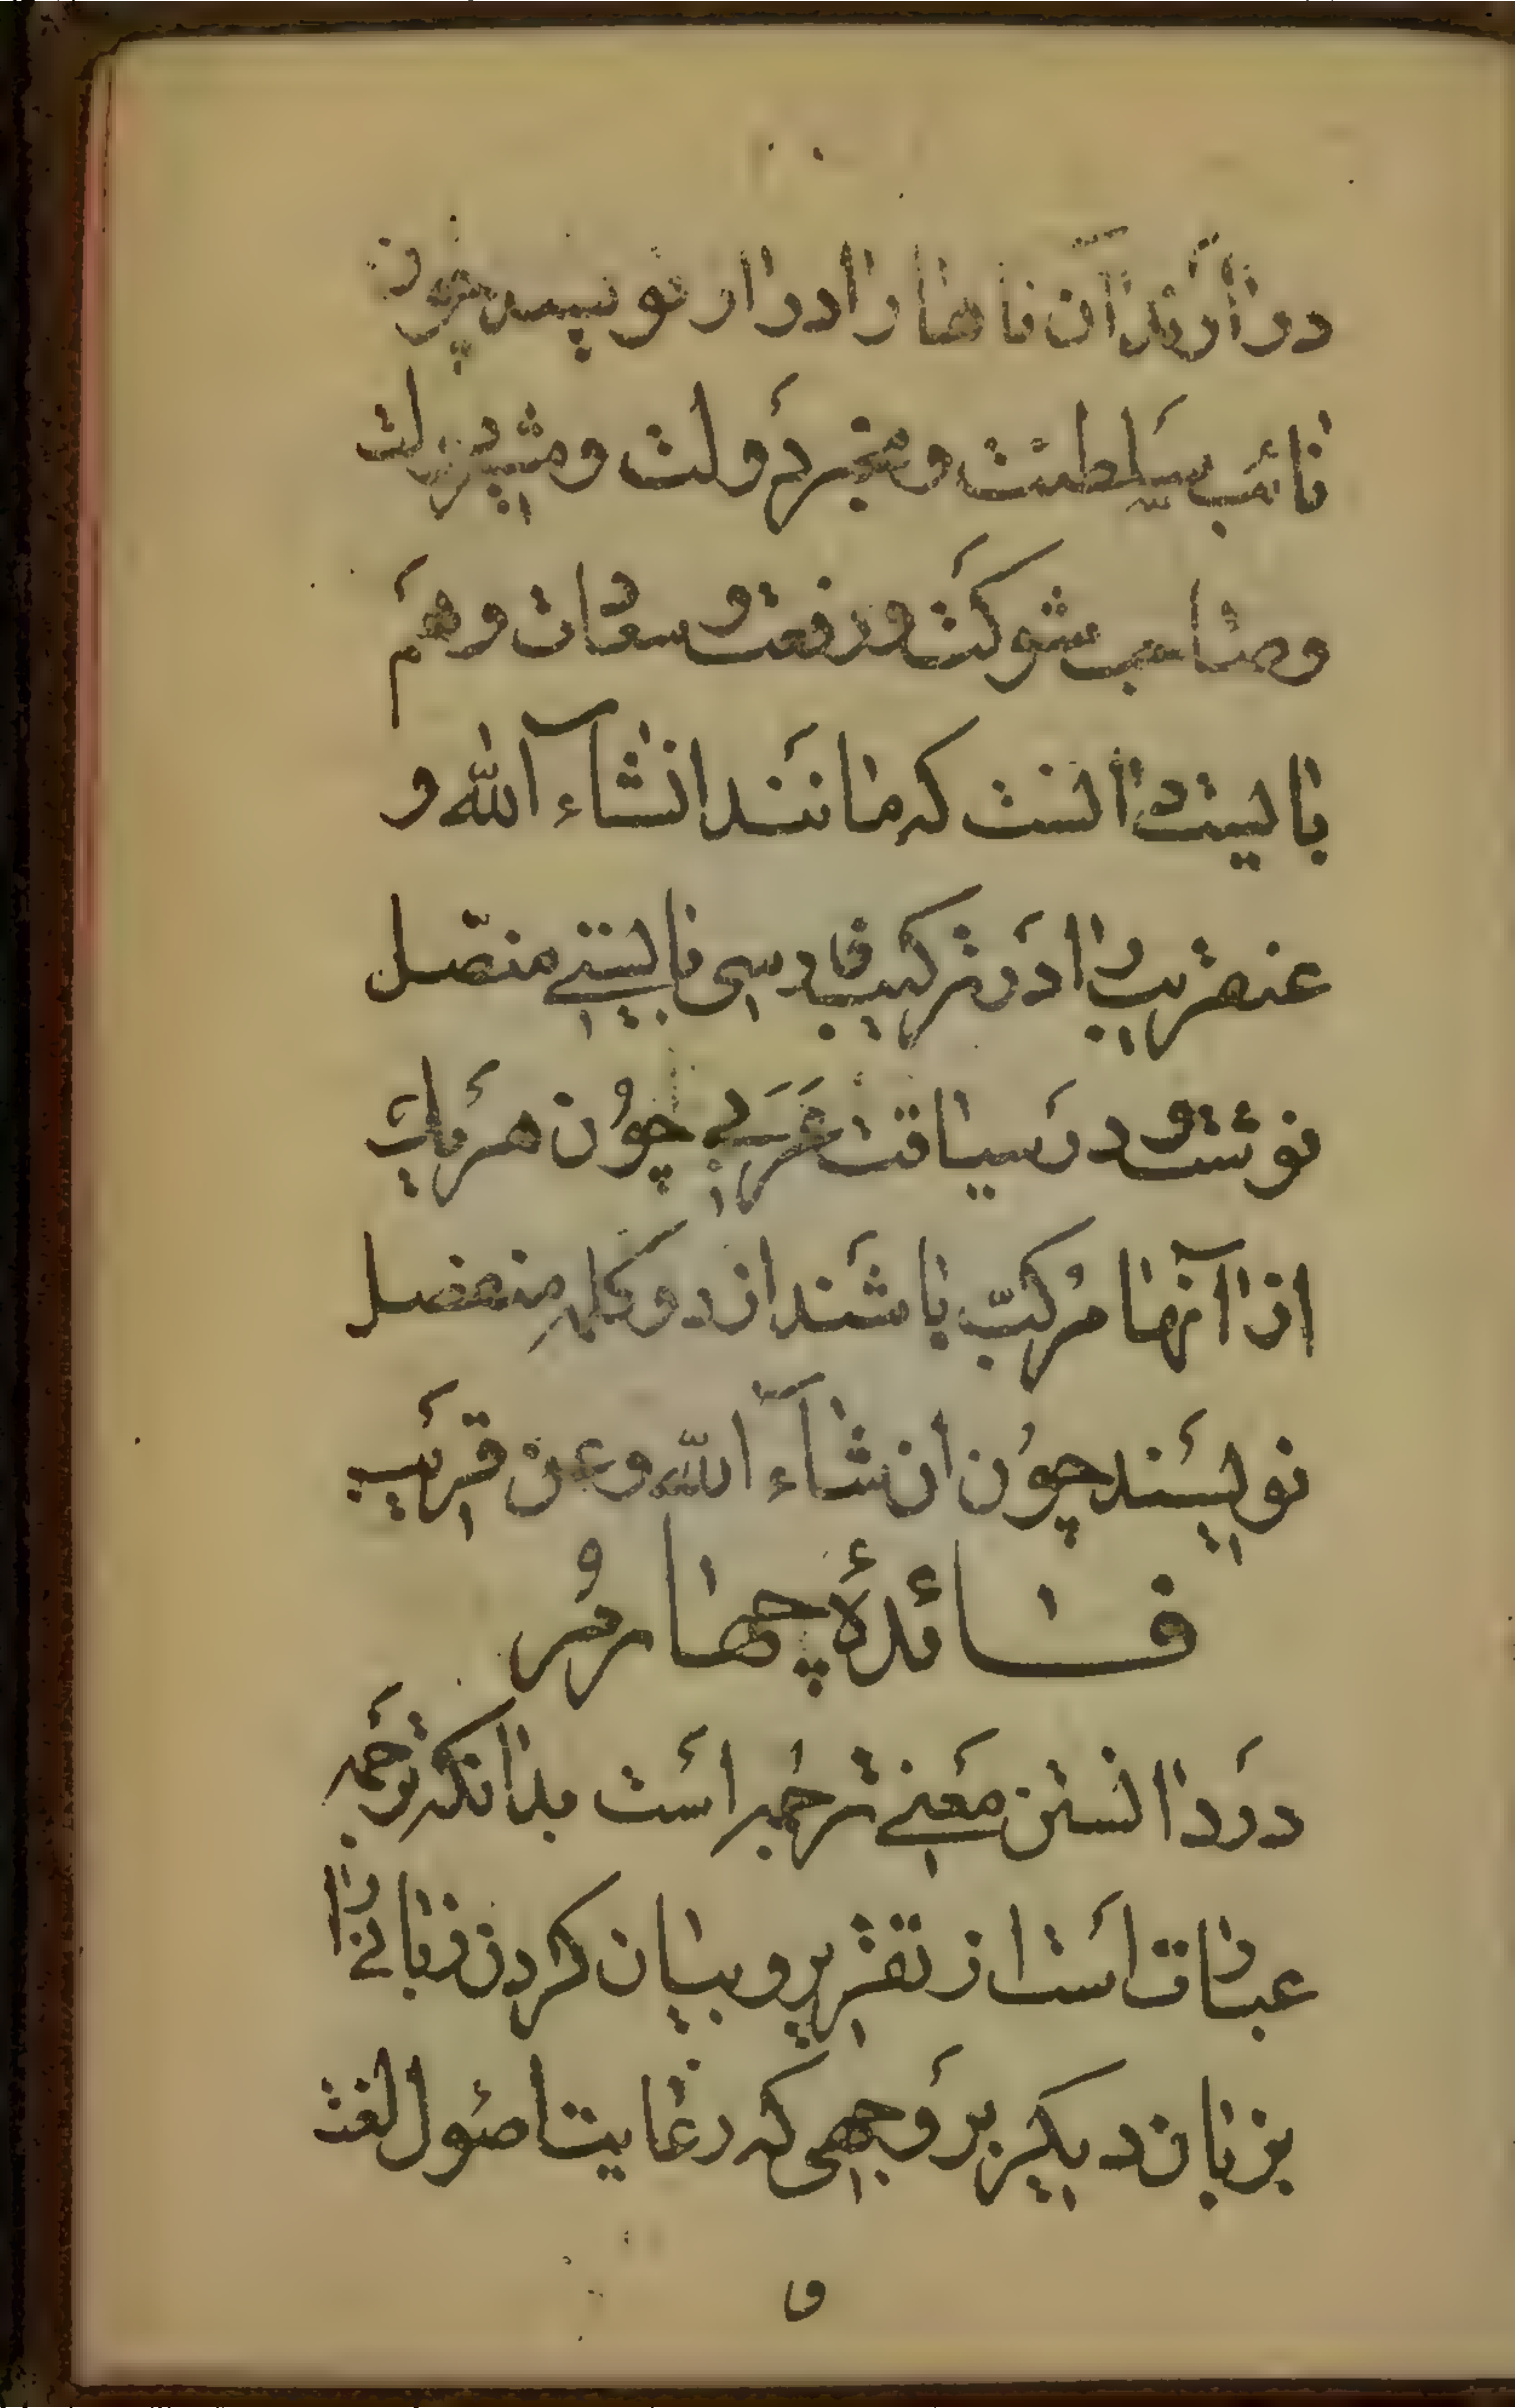 در آرند آن تاها را دراز نویسند چون
نائب سلطنت و مخبر دولت و مشیر
وصاحب شوکت ورفعت وسعادت وهم
بایست دانست که مانند انشاء آلله و
عنقریب را در ترکیب فارسی بایستی متصل
نوشت و در سیاقت عربی چون هر یک
از آنها مرکّب باشند از دو کلمه منفصل
نویسند چون ان شاء آلله و عن قریب
فائدهٔ چهارم
در دانستن معنی ترجمه است بدانکه ترجمه
عبارت است از تقریر و بیان کردن زبانی را
بزبان دیگر بر وجهی که رعایت اصول لغت
و